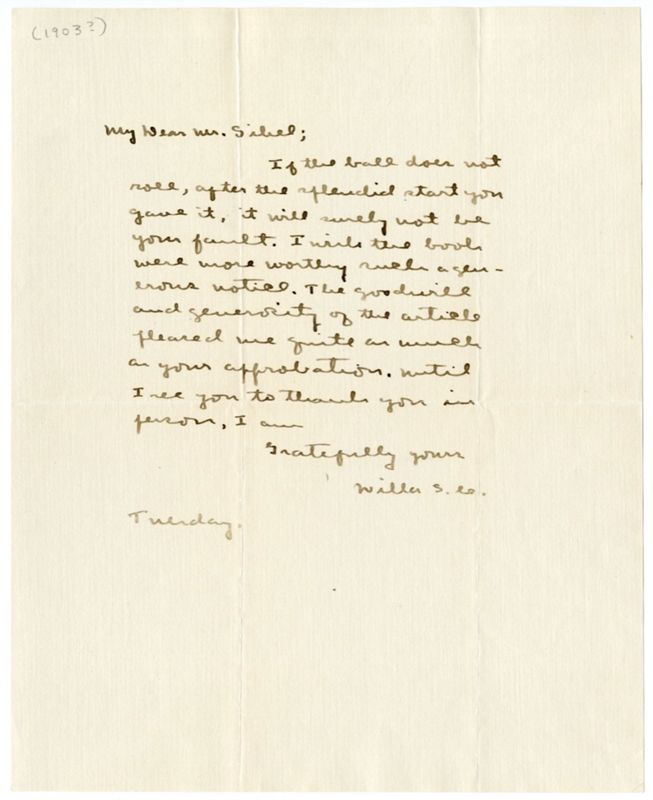 (1903?)
My Dear Mr. Sibel;
If the ball does not
roll, after the splendid start you
gave it, it will surely not be
your fault. I wish the book
were more worthy such a gen-
erous notice. The goodwill
and generosity of the article
pleased me quite as much
as your approbation. Until
I see you to thank you in
person, I am
Gratefully yours
Willa S. C.
Tuesday.